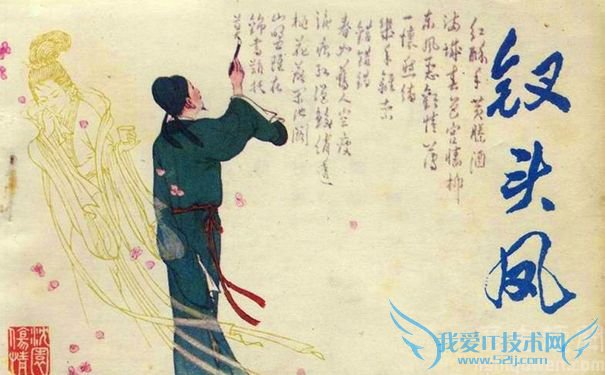 钗头凤
红酥手黄縢酒
满城春色宫墙柳
东风恶欢情薄
一懷愁绪
几年离索
錯錯錯
春如舊人空瘦
泪痕红浥鲛绡透
桃花落闲池阁
山盟虽在
锦书难托
莫
沈園
傷情
我爱IT技术网
www.52ij.com